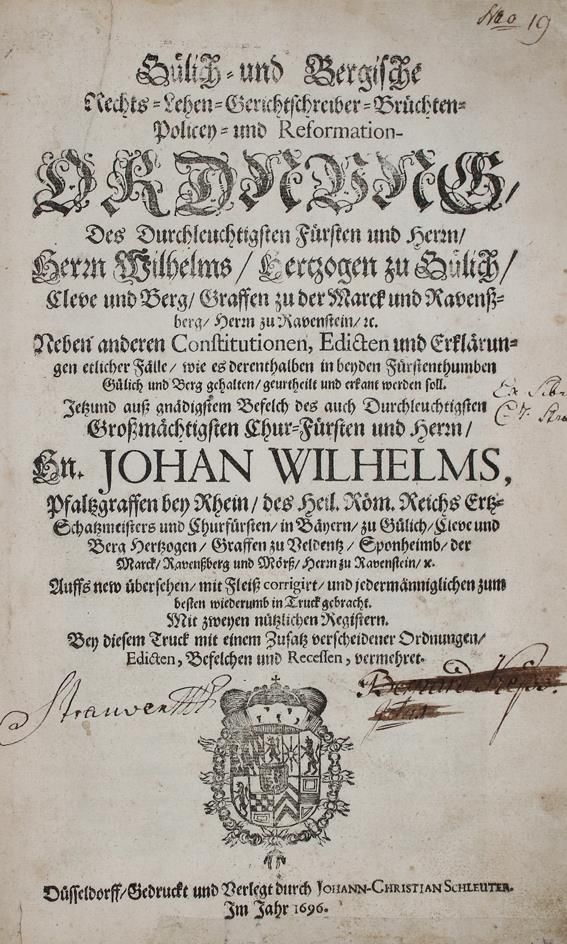 No 19
Gülich- und Bergische
Rechts-Lehen-Gerichtschreiber-Brüchten-
Policey- und Reformation-
ORDNUNG/
Des Durchleuchtigsten Fürsten und Herrn/
Herrn Wilhelms / Hertzogen zu Gülich/
Cleve und Berg/ Graffen zu der Marck und Ravenß-
berg/ Herrn zu Ravenstein/ ꝛc.
Neben anderen Constitutionen, Edicten und Erklärun-
gen etlicher Fälle/ wie es derenthalben in beyden Fürstenthumben
Gülich und Berg gehalten/ geurtheilt und erkant werden soll.
Jetzund auß gnädigstem Befelch des auch Durchleuchtigsten
Großmächtigsten Chur-Fürsten und Herrn/
Hn. JOHAN WILHELMS,
Pfaltzgraffen bey Rhein/ des Heil. Röm. Reichs Ertz-
Schatzmeisters und Churfürsten/ in Bäyern/ zu Gülich/ Cleve und
Berg Hertzogen/ Graffen zu Veldentz/ Sponheimb/ der
Marck/ Ravenßberg und Mörß/ Herrn zu Ravenstein/ ꝛc.
Auffs new übersehen/ mit Fleiß corrigirt/ und jedermänniglichen zum
besten wiederumb in Truck gebracht.
Mit zweyen nützlichen Registern.
Bey diesem Truck mit einem Zusatz verscheidener Ordnungen/
Edicten, Befelchen und Recessen, vermehret.
Strauven
Düsseldorff/ Gedruckt und Verlegt durch JOHANN-CHRISTIAN SCHLEUTER.
Im Jahr 1696.